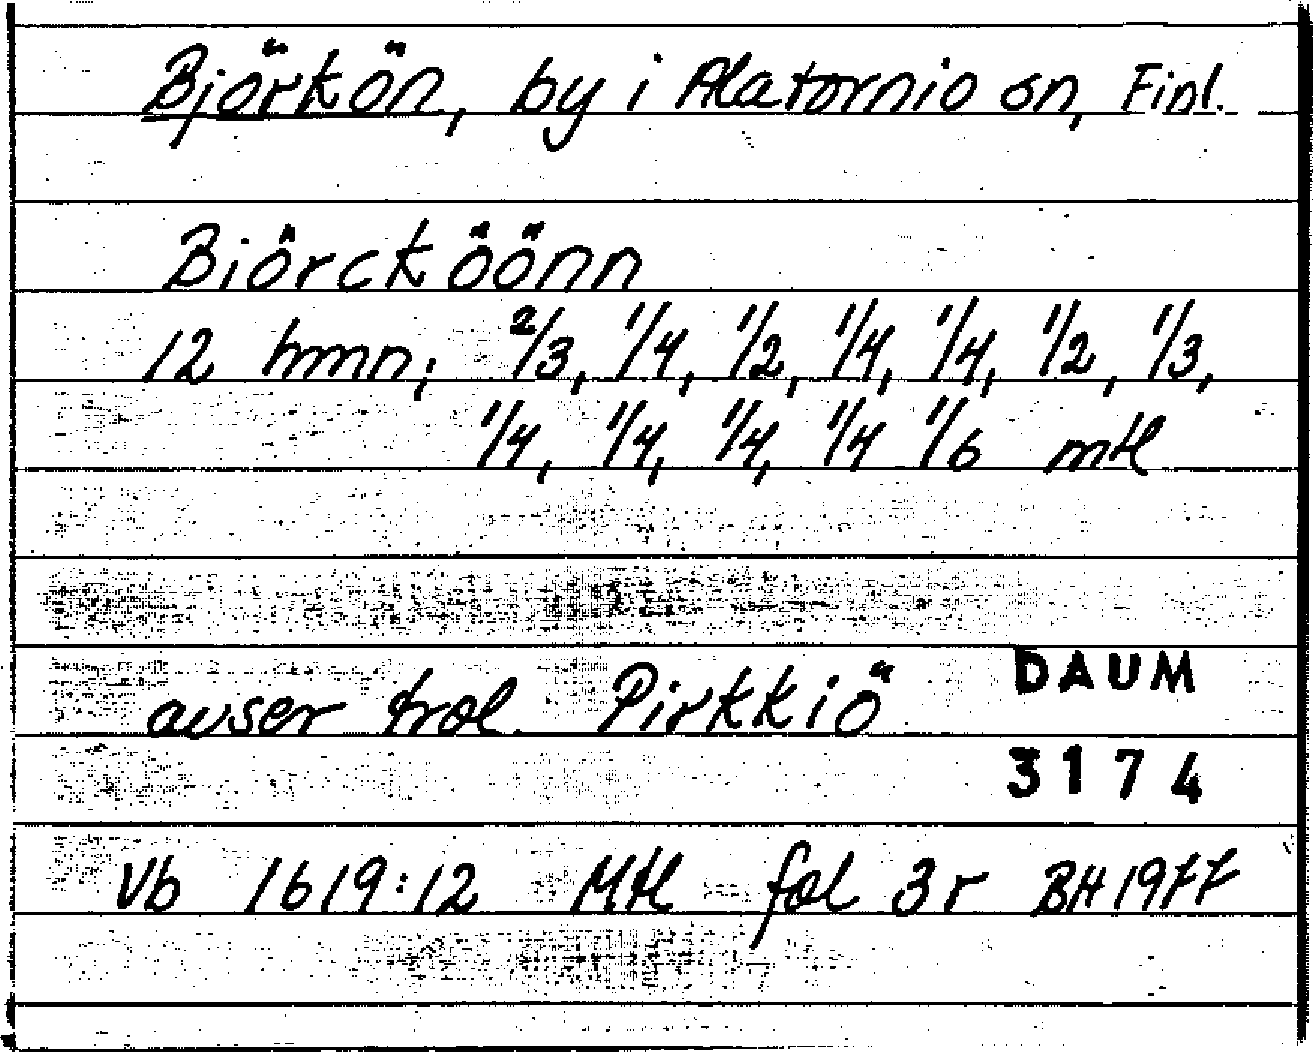 Björkön, by i Alatornio sn, Finl.
Biörcköönn
12 hmn; 2/3, 1/4, 1/2, 1/4, 1/4, 1/2, 1/3,
1/4, 1/4, 1/4, 1/4 1/6 mtl
avser trol. Pirkkiö
DAUM
3174
Vb 1619:12 Mtl fol 3r BH 1977